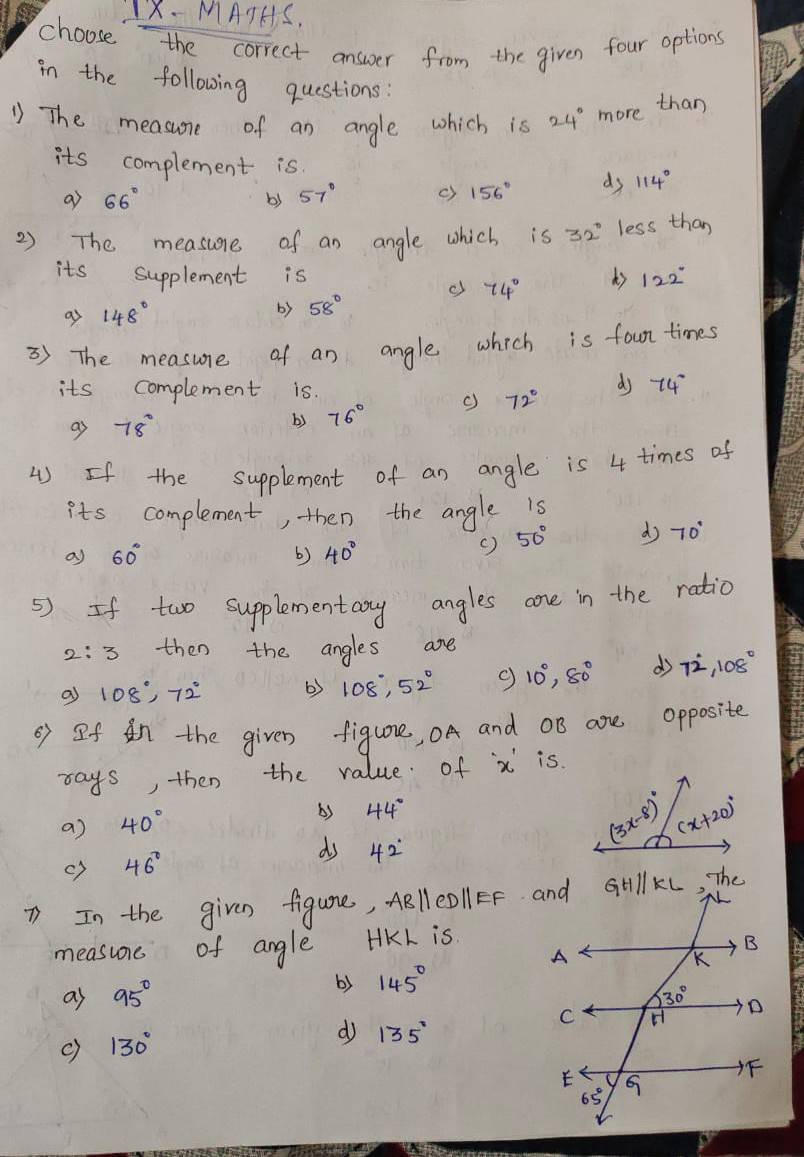 IX - MATHS.
Choose the correct answer from the given four options
in the following questions:
1) The measure of an angle which is 24° more than
its complement is.
a) 66° b) 57° c) 156° d) 114°
2) The measure of an angle which is 32° less than
its supplement is
a) 148° b) 58° c) 74° d) 122°
3) The measure of an angle which is four times
its complement is.
a) 78° b) 76° c) 72° d) 74°
4) If the supplement of an angle is 4 times of
its complement, then the angle is
a) 60° b) 40° c) 50° d) 70°
5) If two supplementary angles are in the ratio
2:3 then the angles are
a) 108°, 72° b) 108°, 52° c) 10°, 80° d) 72°, 108°
6) If in the given figure, OA and OB are opposite
rays, then the value of 'x' is.
a) 40° b) 44°
c) 46° d) 42°
(3x-8)° (x+20)°
7) In the given figure, AB||ED||EF and GH||KL, The
measure of angle HKL is.
a) 95° b) 145°
c) 130° d) 135°
L
A K B
C H 30° D
E G F
65°